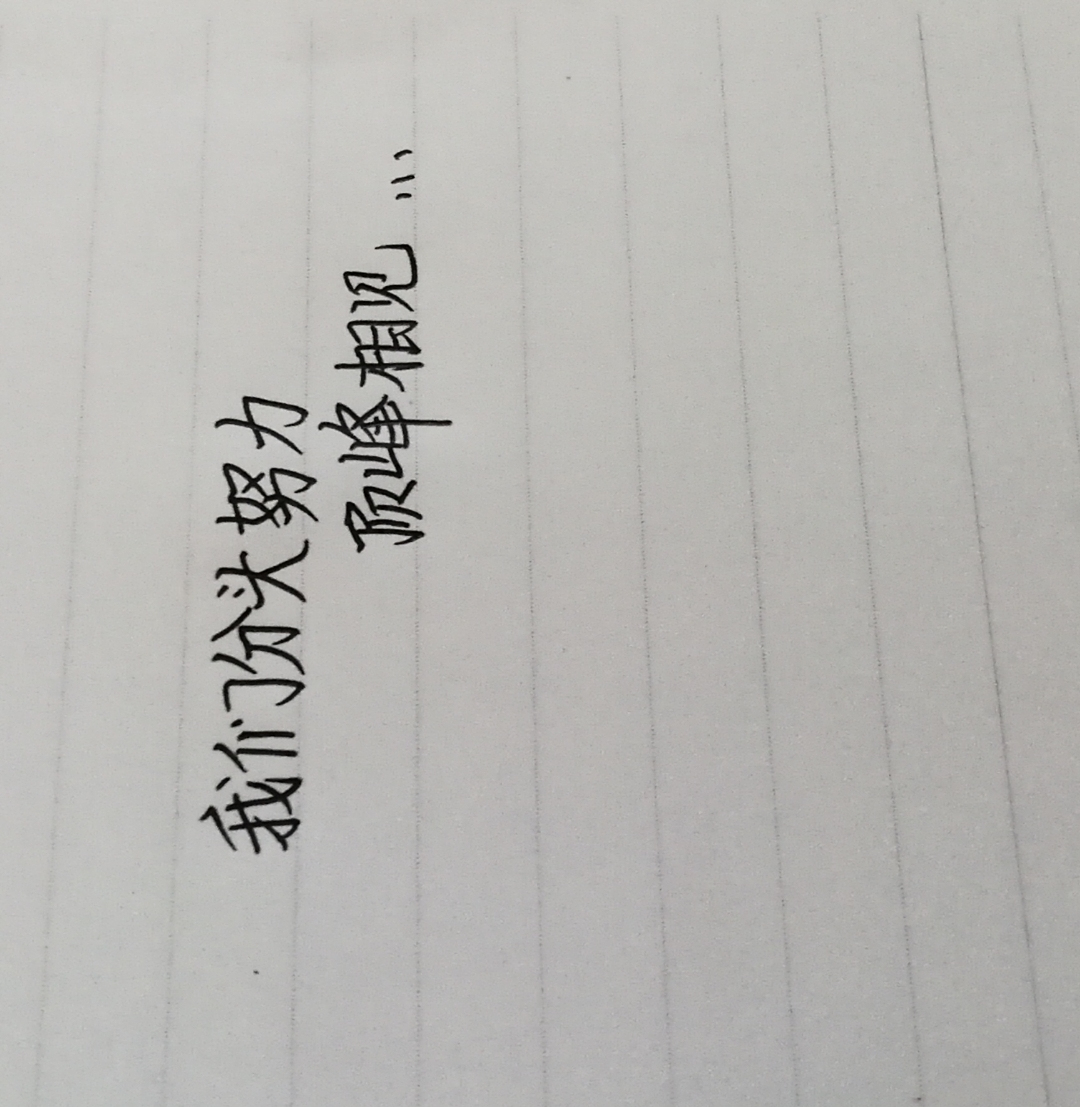 我们份头努力
顶峰相见...